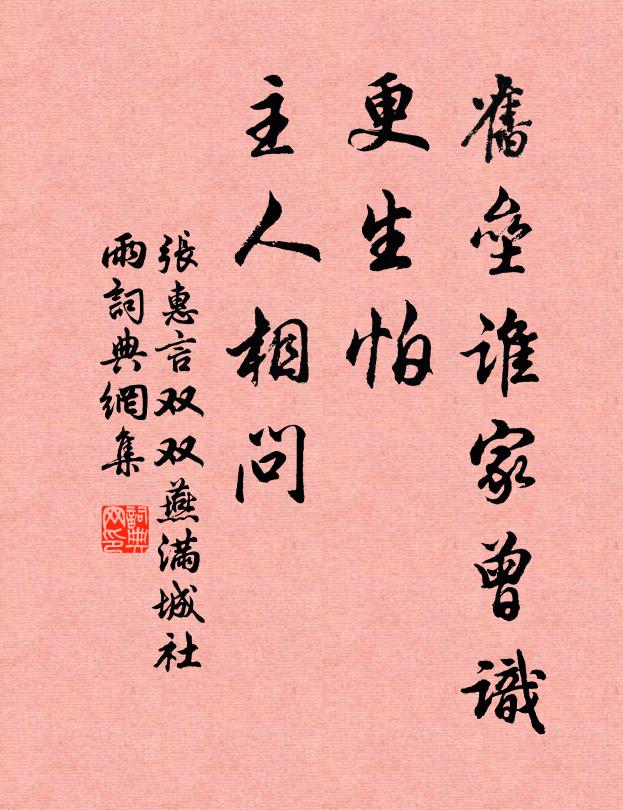 舊壘誰家曾識
更生怕
主人相問
張惠言双双燕满城社
雨詞典網集
詞典
网印